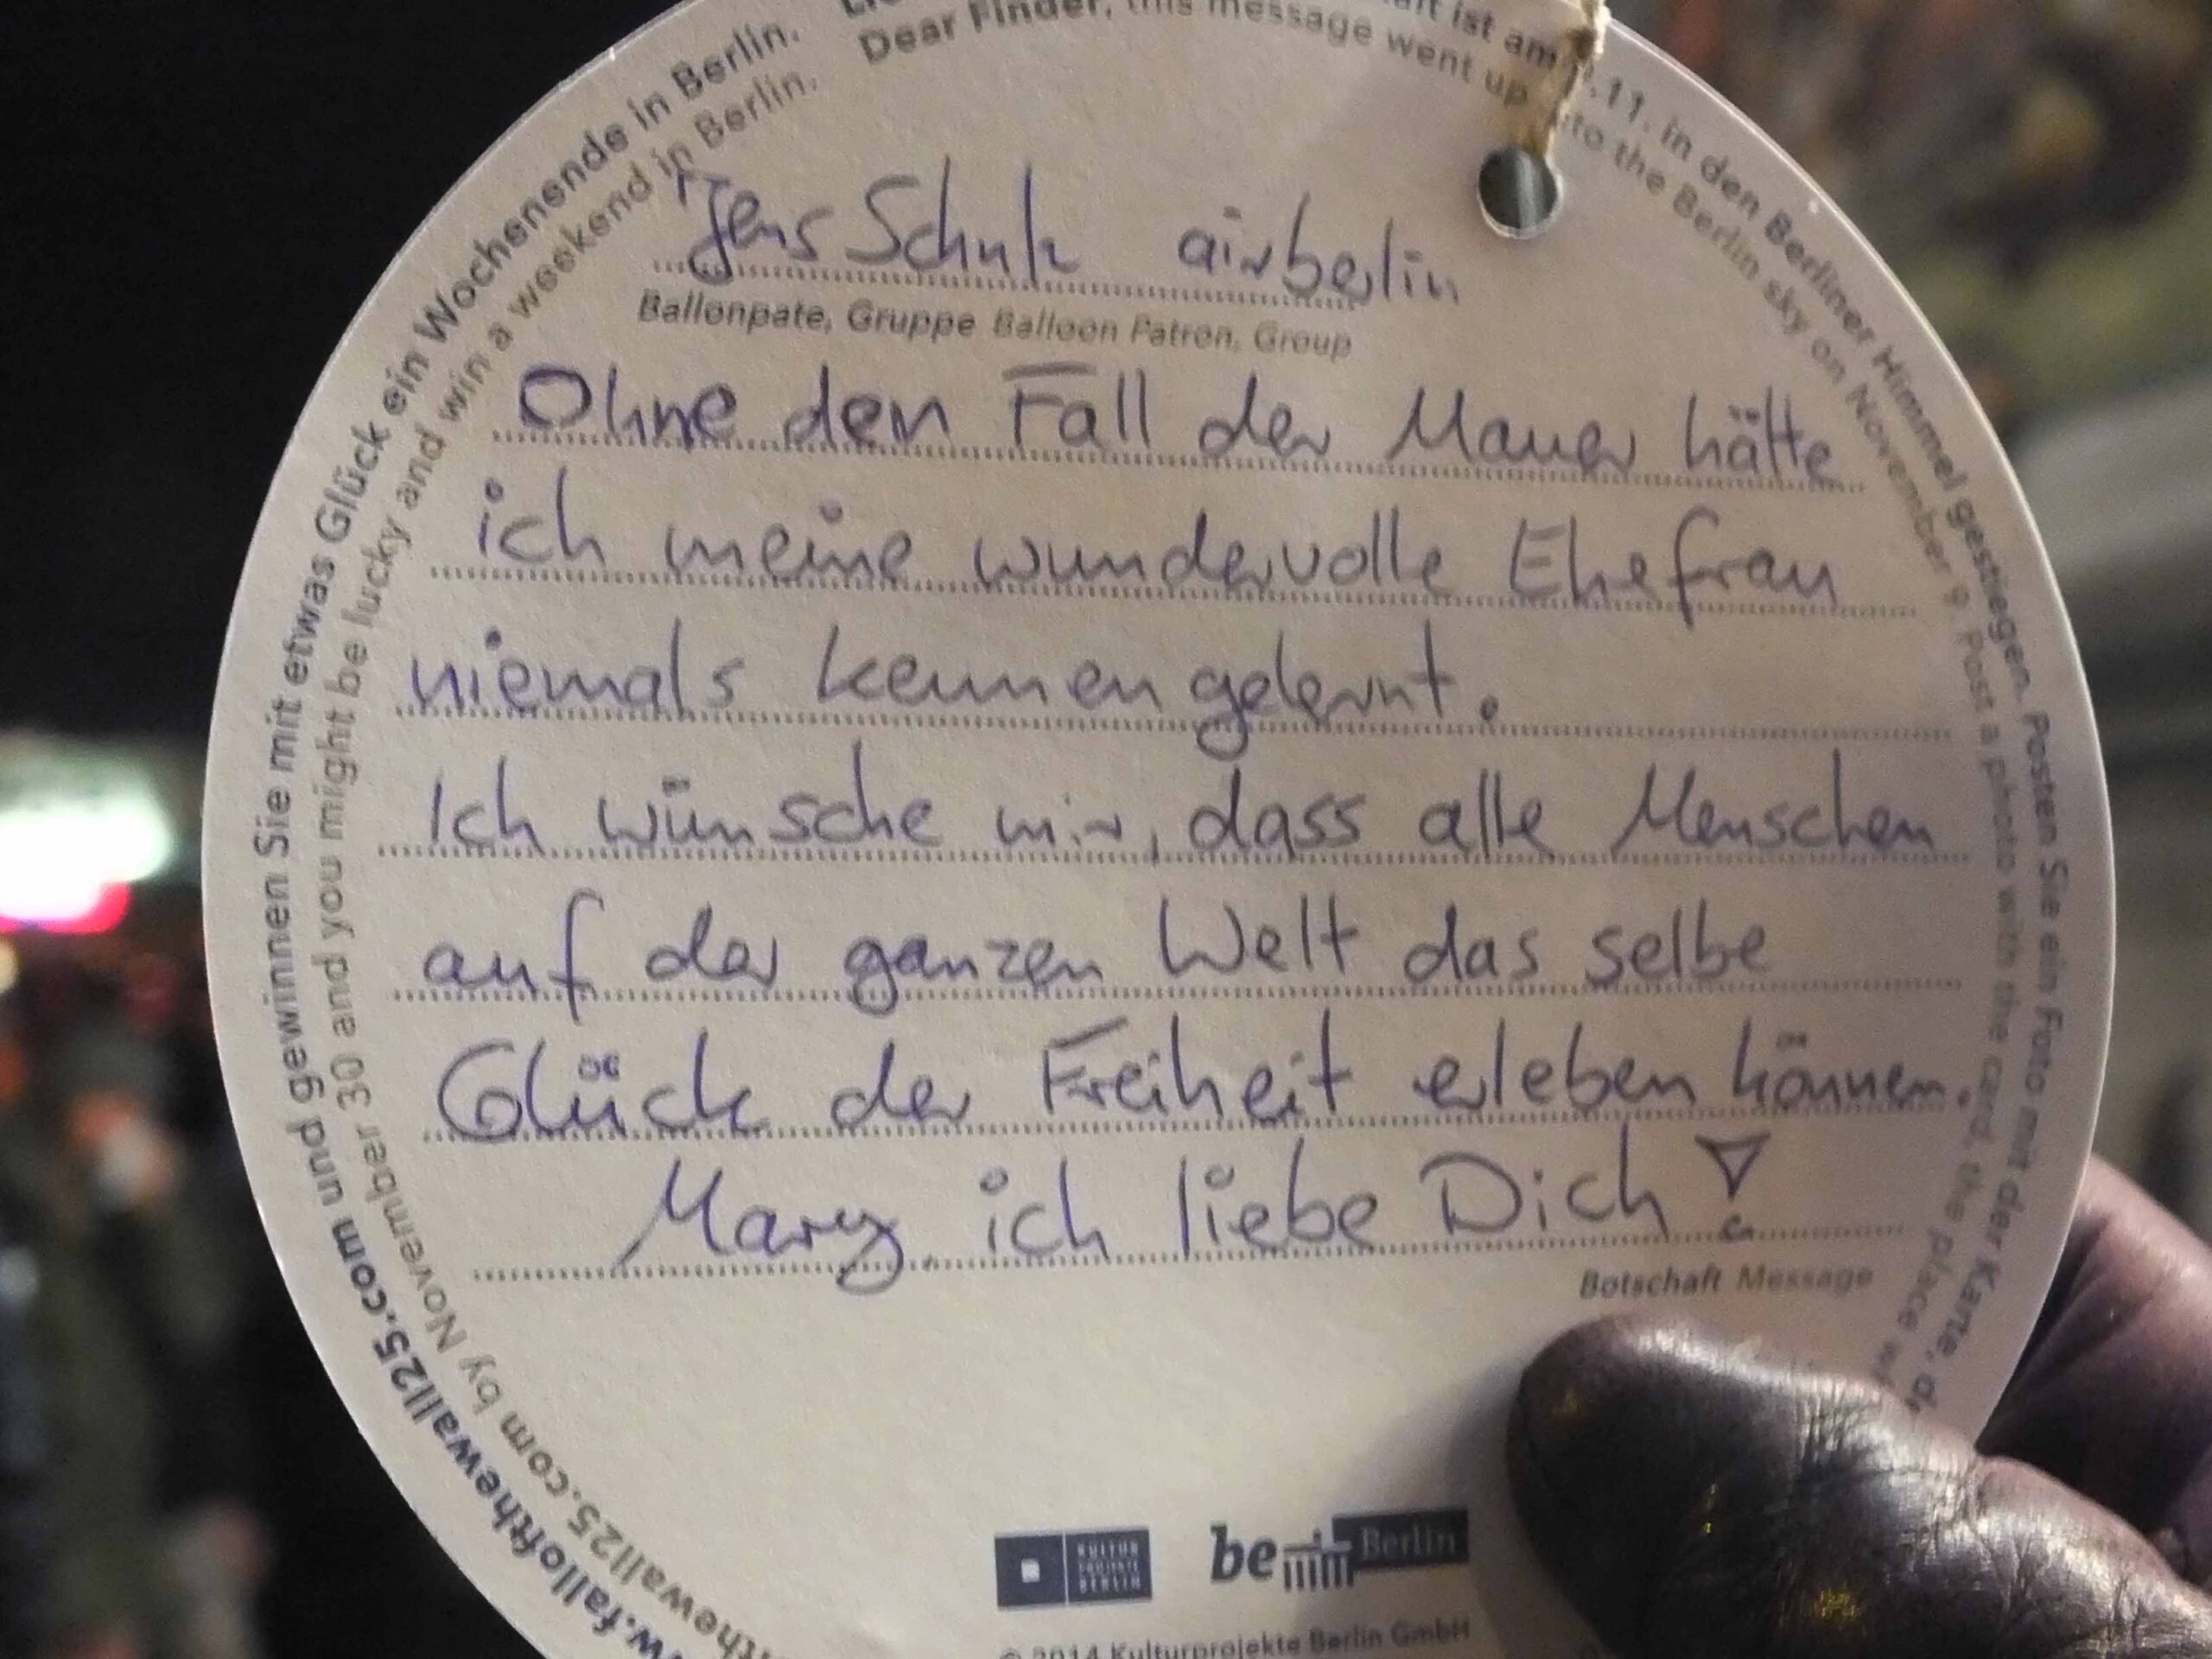 Dear Finder, this message went up to the Berlin sky on November 9. Post a photo with the card, the place
ist am 9.11. in den Berliner Himmel gestiegen. Posten Sie ein Foto mit der Karte,
und gewinnen Sie mit etwas Glück ein Wochenende in Berlin.
by November 30 and you might be lucky and win a weekend in Berlin.
Jens airberlin
Ballonpate, Gruppe Balloon Patron, Group
Ohne den Fall der Mauer hätte
ich meine wundervolle Ehefrau
niemals kennengelernt.
Ich wünsche mir, dass alle Menschen
auf der ganzen Welt das selbe
Glück der Freiheit erleben können.
Mary, ich liebe Dich!
Botschaft Message
www.fallofthewall25.com
thewall25.com
KULTUR
PROJEKTE
BERLIN
be Berlin
© 2014 Kulturprojekte Berlin GmbH